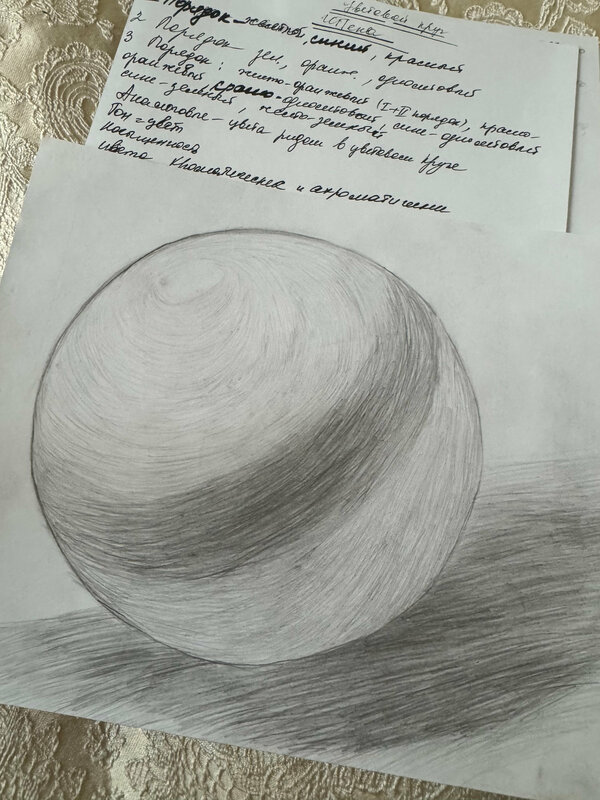 Цветовой круг
Иттена
1 Порядок - желтый, синий, красный
2 Порядок - зел., оранж., фиолетовый
3 Порядок: желто-оранжевый (I+II порядок), красно-
оранжевый, красно-фиолетовый, сине-фиолетовый
сине-зеленый, желто-зеленый
Аналоговые - цвета рядом в цветовом круге
Тон = цвет
насыщенность
цвета Хроматические и ахроматические